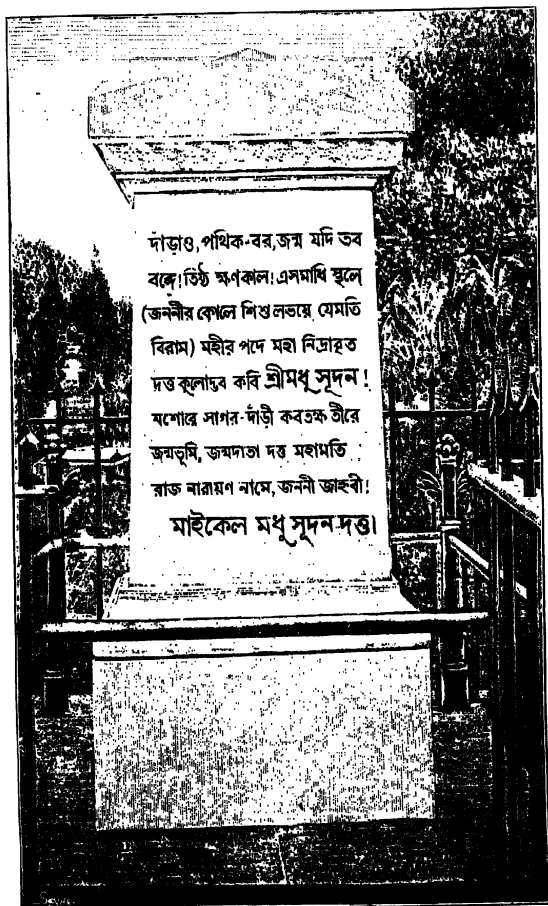 দাঁড়াও, পথিক-বর, জন্ম যদি তব
বঙ্গে! তিষ্ঠ ক্ষণকাল! এসমাধি স্থলে
(জননীর কোলে শিশু লভয়ে, যেমতি
বিরাম) মহীর পদে মহা নিদ্রাবৃত
দত্ত কুলোদ্ভব কবি শ্রীমধুসূদন!
যশোরে সাগর-দাঁড়ী কবতক্ষ তীরে
জন্মভূমি, জন্মদাতা দত্ত মহামতি
রাজ নারায়ণ নামে, জননী জাহ্নবী!
মাইকেল মধুসূদন দত্ত।